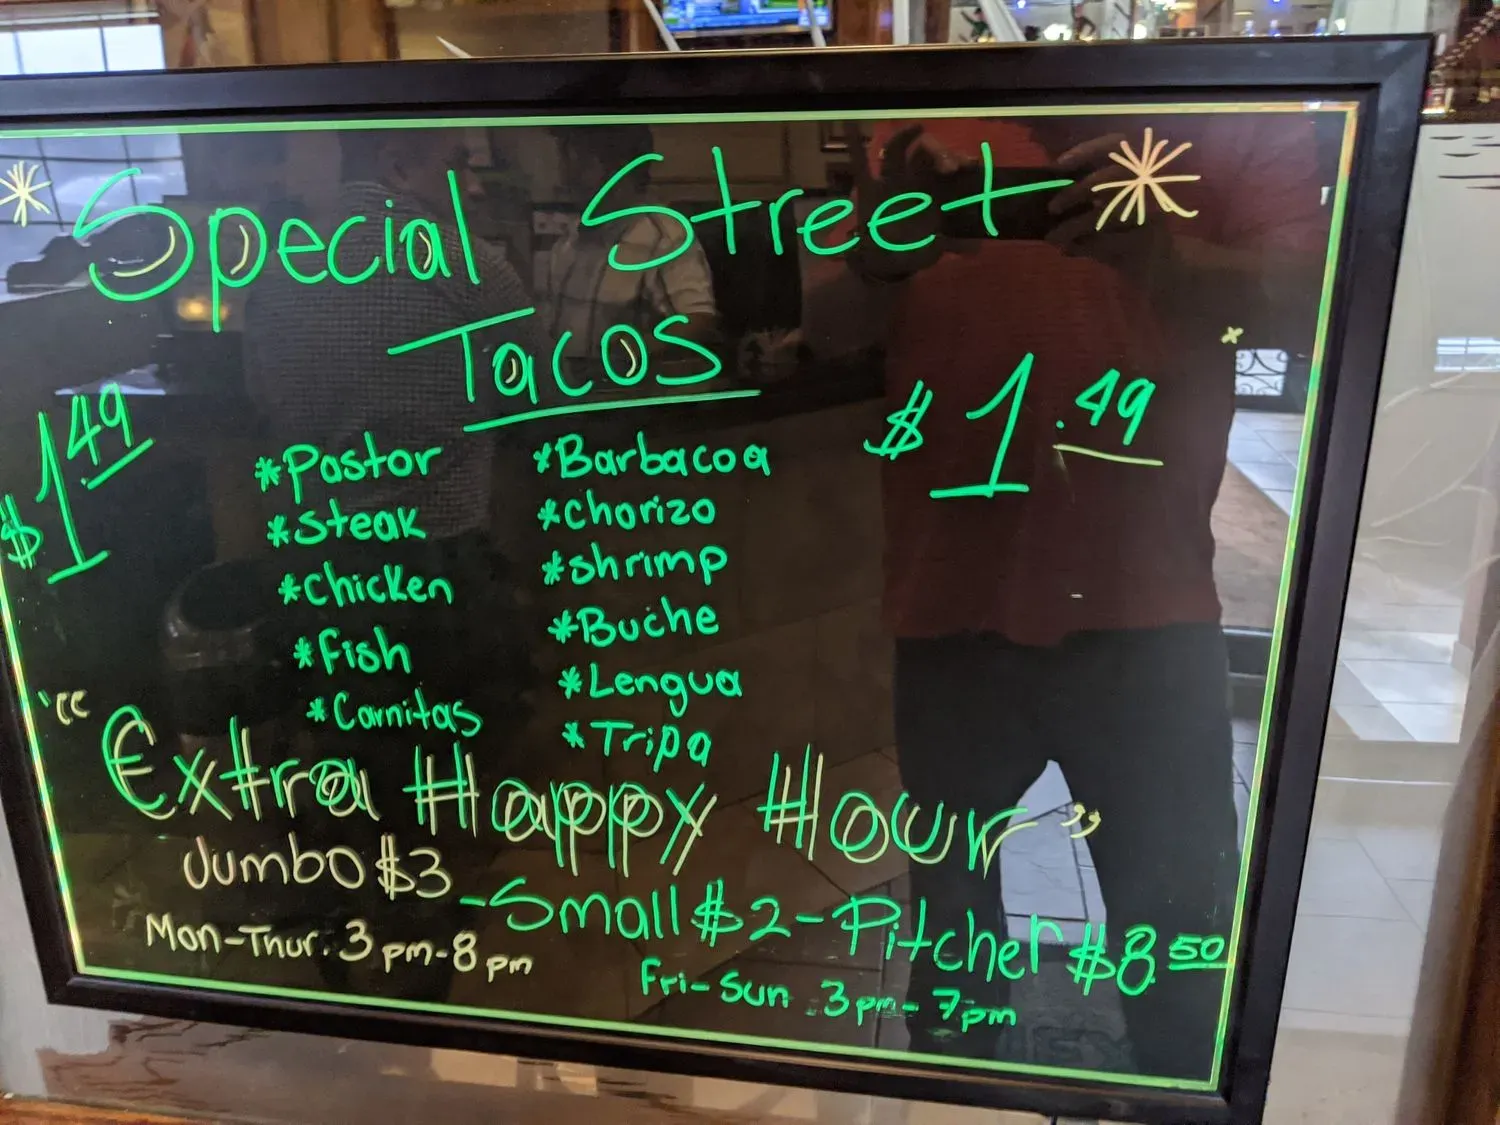 Special Street
Tacos
$1.49
$1.49
*Pastor
*Steak
*Chicken
*Fish
*Carnitas
*Barbacoa
*Chorizo
*Shrimp
*Buche
*Lengua
*Tripa
"Extra Happy Hour"
Jumbo $3 -Small $2 -Pitcher $8.50
Mon-Thur. 3pm-8pm
Fri-Sun 3pm-7pm